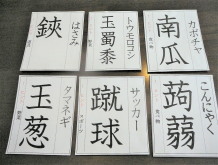 鋏
はさみ
玉蜀黍
トウモロコシ
南瓜
カボチャ
玉葱
タマネギ
蹴球
サッカー
蒟蒻
こんにゃく